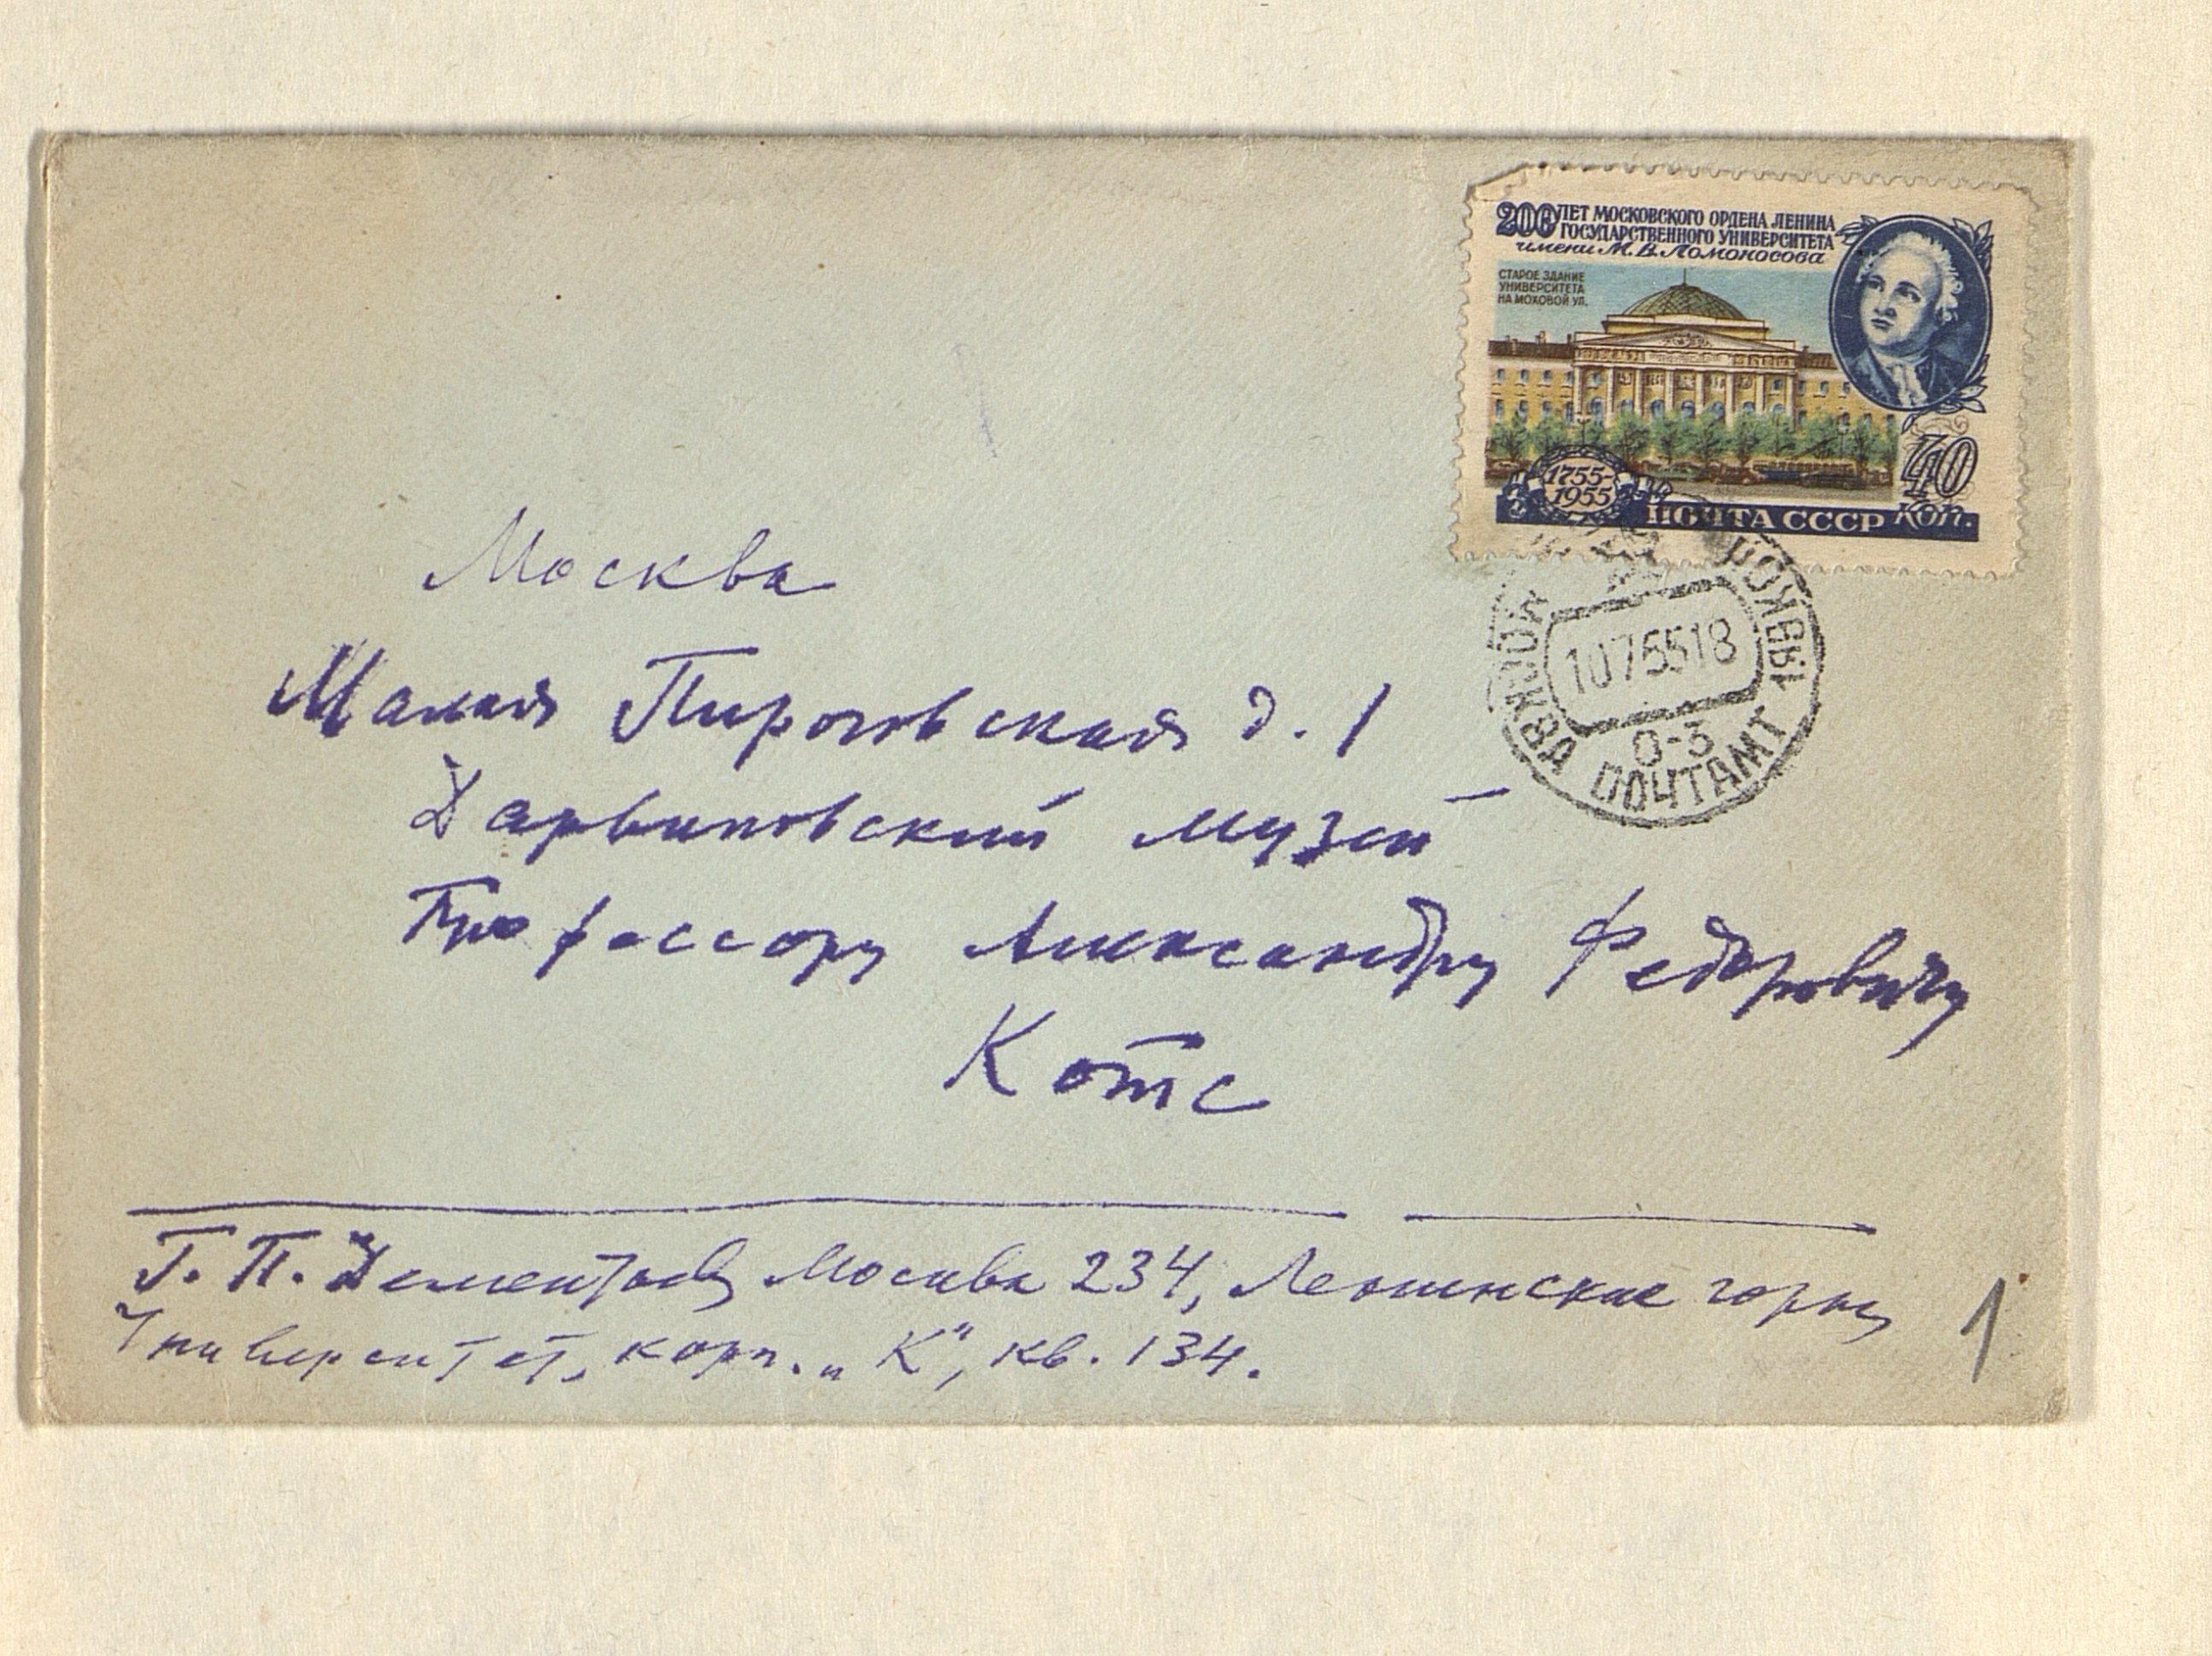 200 ЛЕТ МОСКОВСКОГО ОРДЕНА ЛЕНИНА
ГОСУДАРСТВЕННОГО УНИВЕРСИТЕТА
имени М. В. Ломоносова
СТАРОЕ ЗДАНИЕ
УНИВЕРСИТЕТА
НА МОХОВОЙ УЛ.
1755-
1955
40
ПОЧТА СССР коп.
Москва
Малая Пироговская д. 1
Дарвиновский музей
Профессору Александру Федоровичу
Котс
МОСКВА ПОЧТАМТ
1075518
0-3
Г. П. Дементьев Москва 234, Ленинские горы
Университет, корп. „К", кв. 134.
1